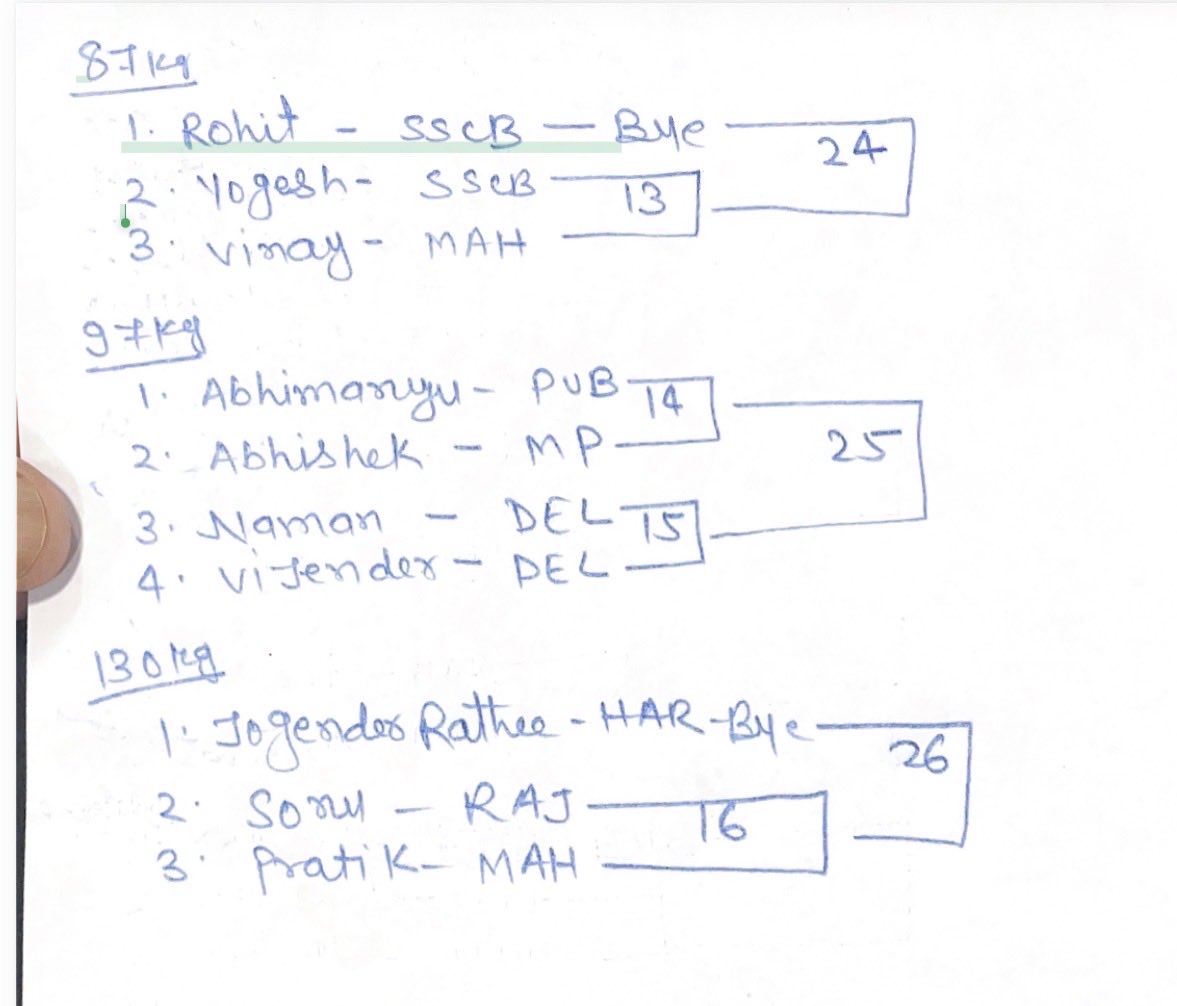 87 kg
1. Rohit - SSCB - Bye 24
2. Yogesh - SSCB 13
3. Vinay - MAH
97 kg
1. Abhimanyu - PUB 14
2. Abhishek - MP 25
3. Naman - DEL 15
4. Vijender - DEL
130 kg
1. Jogender Rathee - HAR - Bye 26
2. Sonu - RAJ 16
3. Pratik - MAH